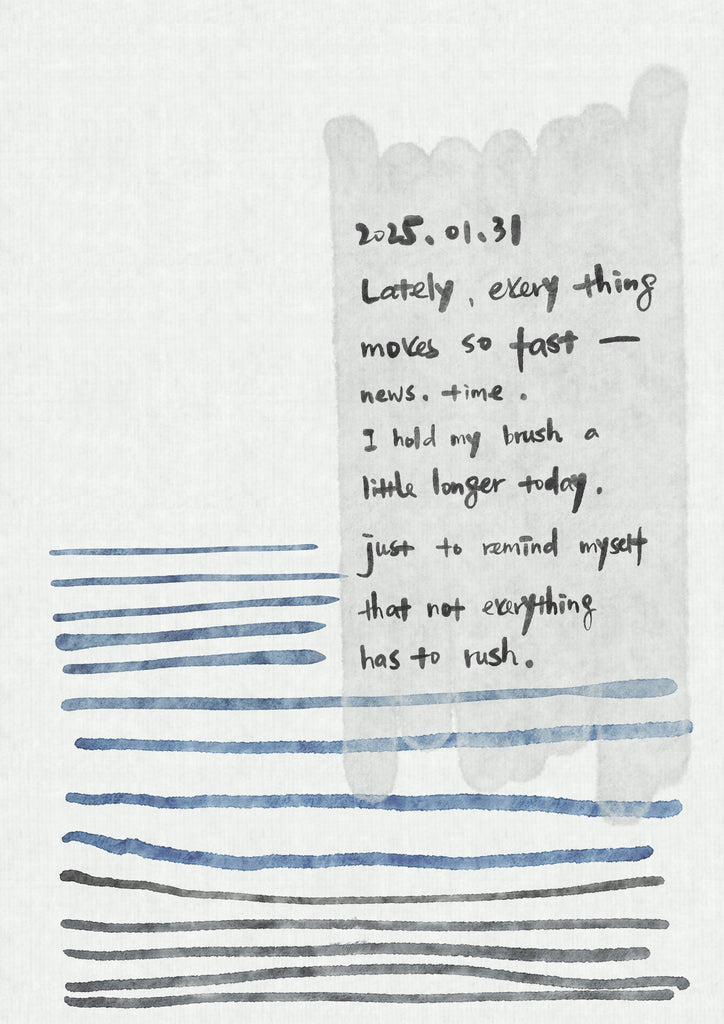 2025.01.31
Lately, every thing
moves so fast —
news. time.
I hold my brush a
little longer today.
just to remind myself
that not everything
has to rush.